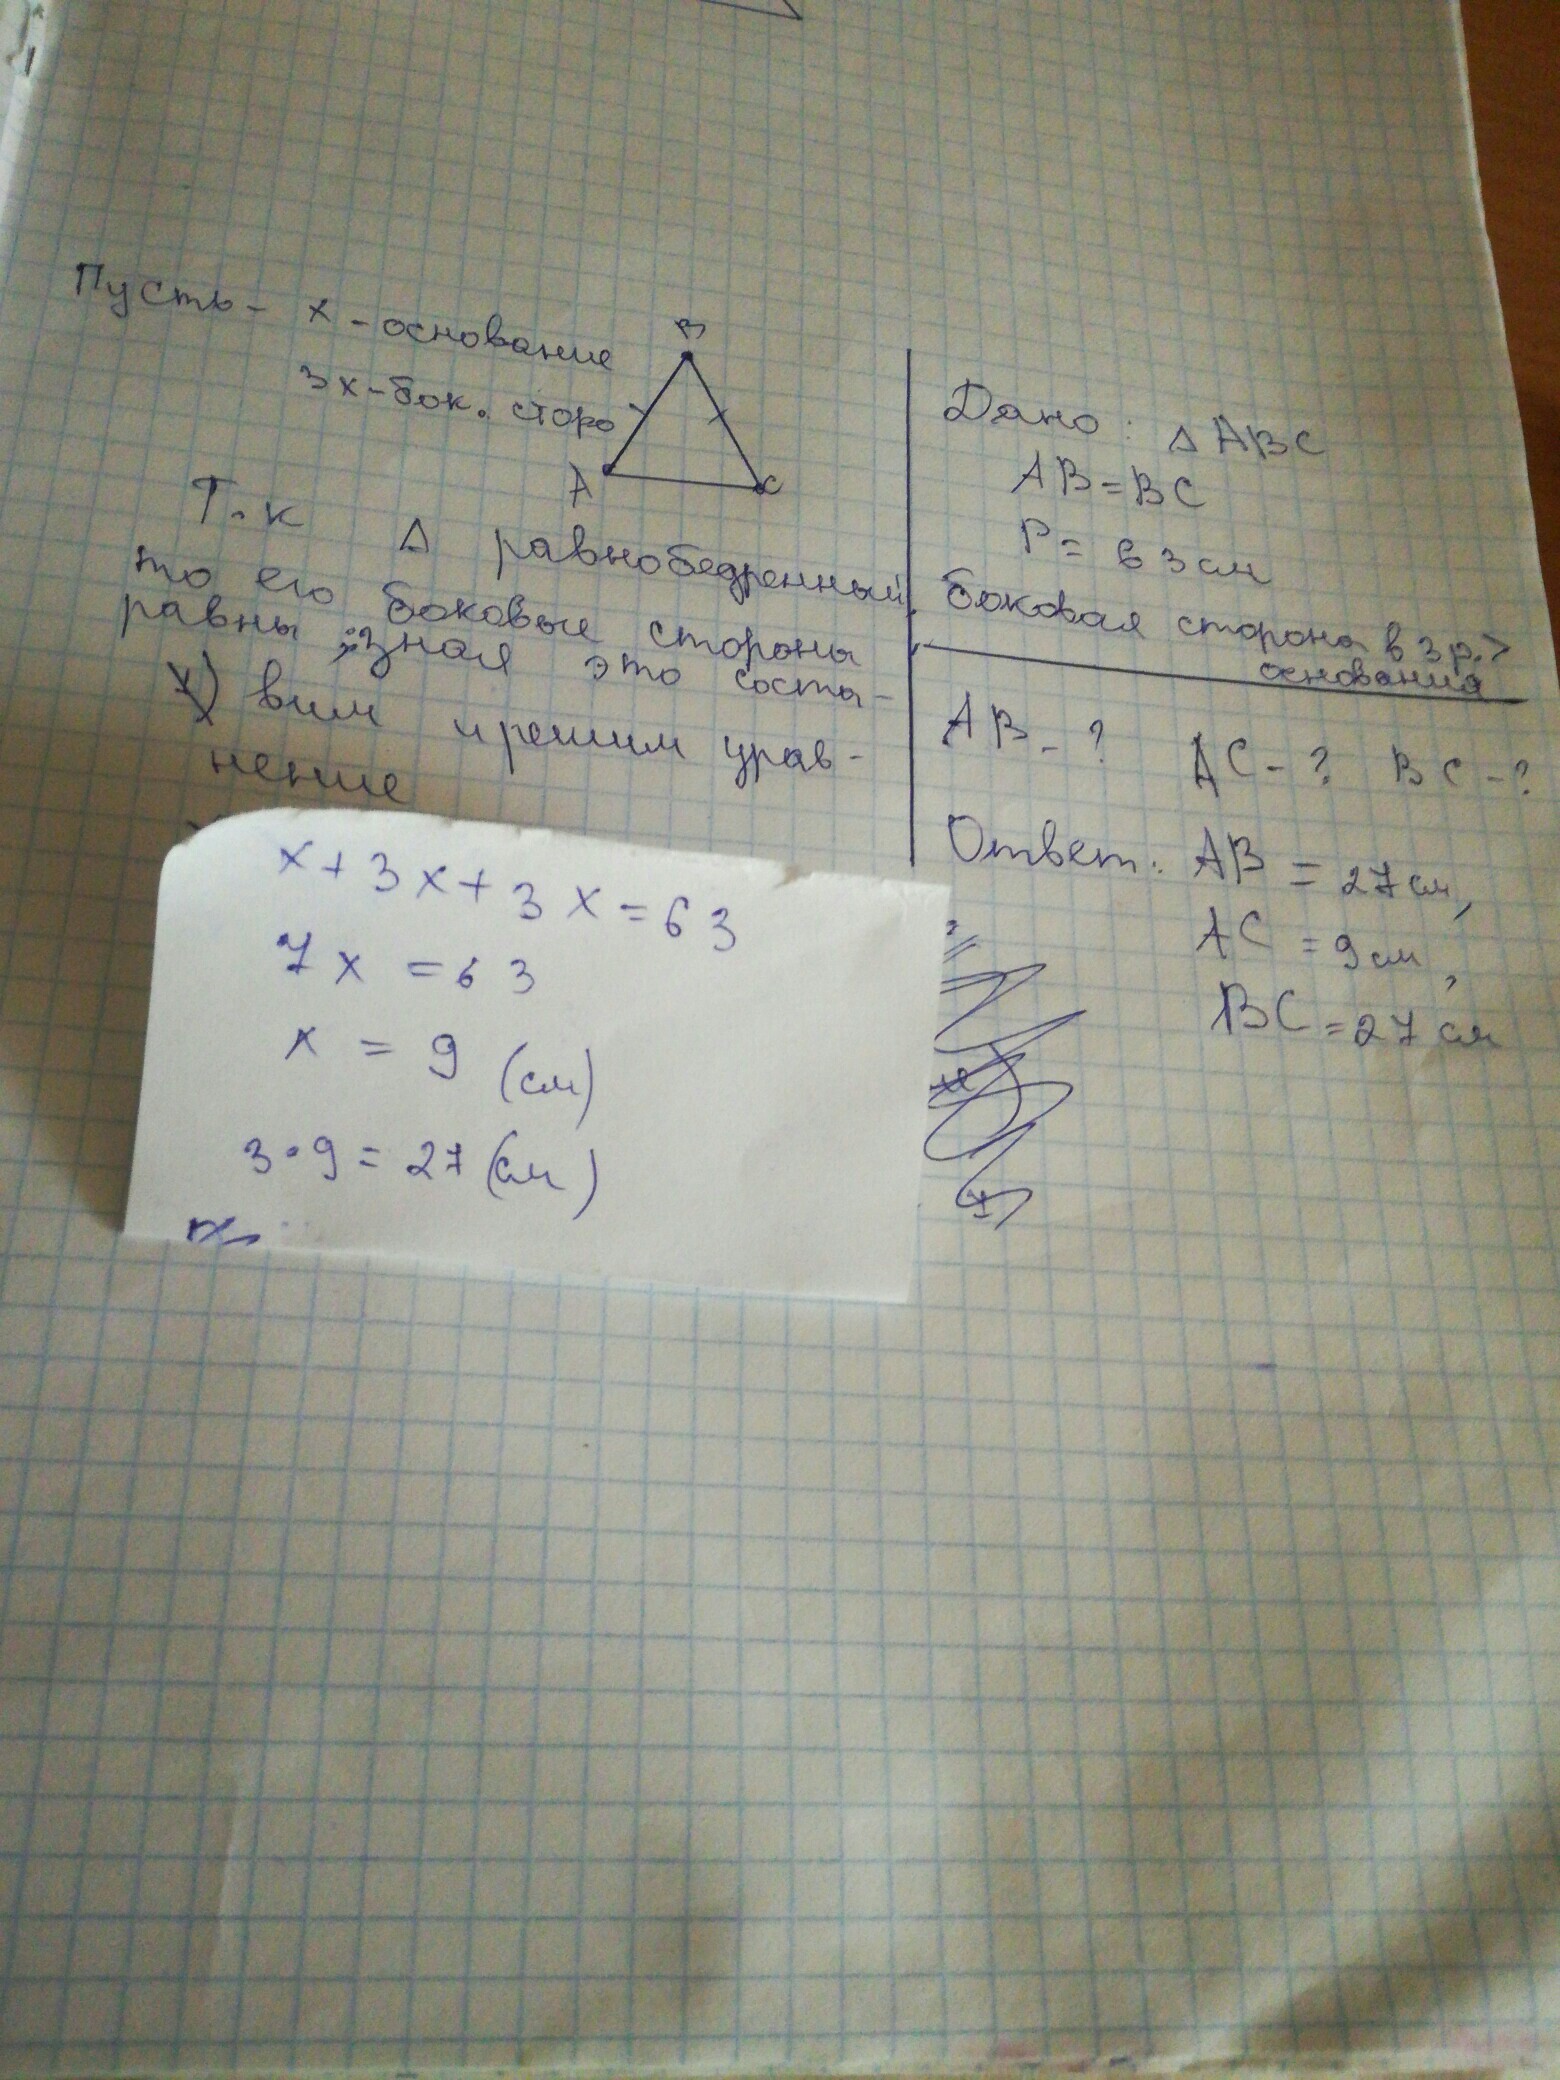 Пусть - x - основание
3x - бок. сторо
B
A
C
Т.к Δ равнобедренный,
то его боковые стороны
равны ; зная это соста-
вим и решим урав-
нение
x + 3x + 3x = 63
7x = 63
x = 9 (см)
3·9 = 27 (см)
Дано : Δ ABC
AB = BC
P = 63 см
боковая сторона в 3 р. >
основания
AB - ? AC - ? BC - ?
Ответ: AB = 27 см,
AC = 9 см,
BC = 27 см